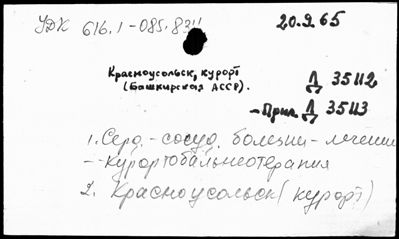 УДК 616.1-085.834 20.9.65
Красноусольск, курорт
(Башкирская АССР).
Д 35112
-Прил. Д 35113
1. Серд.-сосуд. болезни - лечение
- Курортобальнеотерапия
2. Красноусольск (курорт)